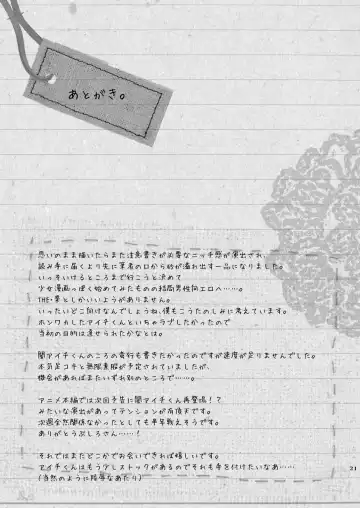 あとがき。
思いのまま描いたらまた注意書きが必要なニッチ感が演出され、
読み手に届くより先に筆者の口から砂が溢れ出す一品になりました。
いっそいけるところまで行こうと決めて
少女漫画っぽく始めてみたものの結局男性向エロへ……。
THE・業としかいいようがありません。
いったいどこ向けなんでしょうね、僕もこうたのしみに考えています。
ホンワカしたアイチくんといちゃラブしたかったので
当初の目的は達せられたかなとは。
闇アイチくんのころの責行も書きたかったのですが速度が足りませんでした。
本気足コキと無限素股が予定されていましたが、
機会があればまたいずれ別のところで……。
アニメ本編では次回予告に闇アイチくん再登場！？
みたいな演出があってテンションが有頂天です。
次週全然関係なかったとしても半年戦えそうです。
ありがとうぶしろさん……！
それではまたどこかでお会いできれば嬉しいです。
アイチくんはもう少しストックがあるのでそれも手を付けたいなあ……
(当然のように陵辱なあたり)
21